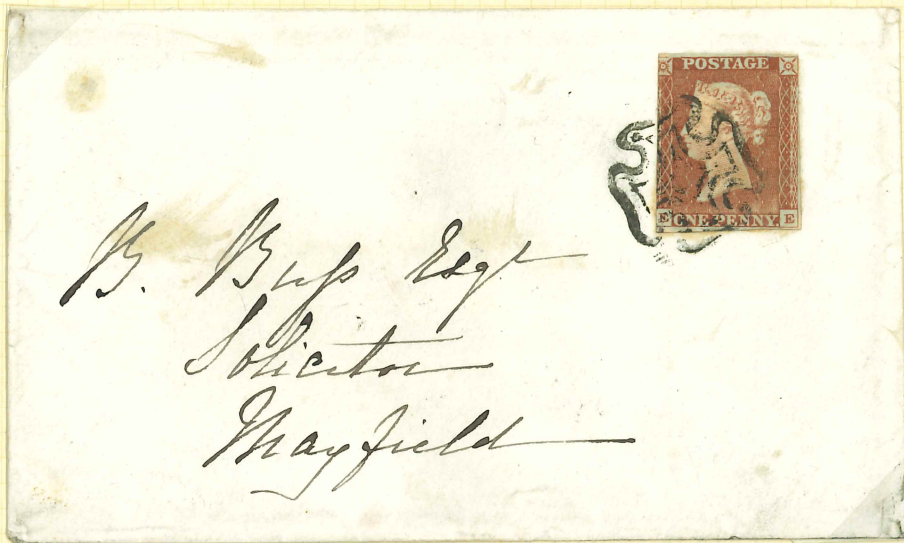 POSTAGE
E ONE PENNY E
B. Buss Esqr
Solicitor
Mayfield